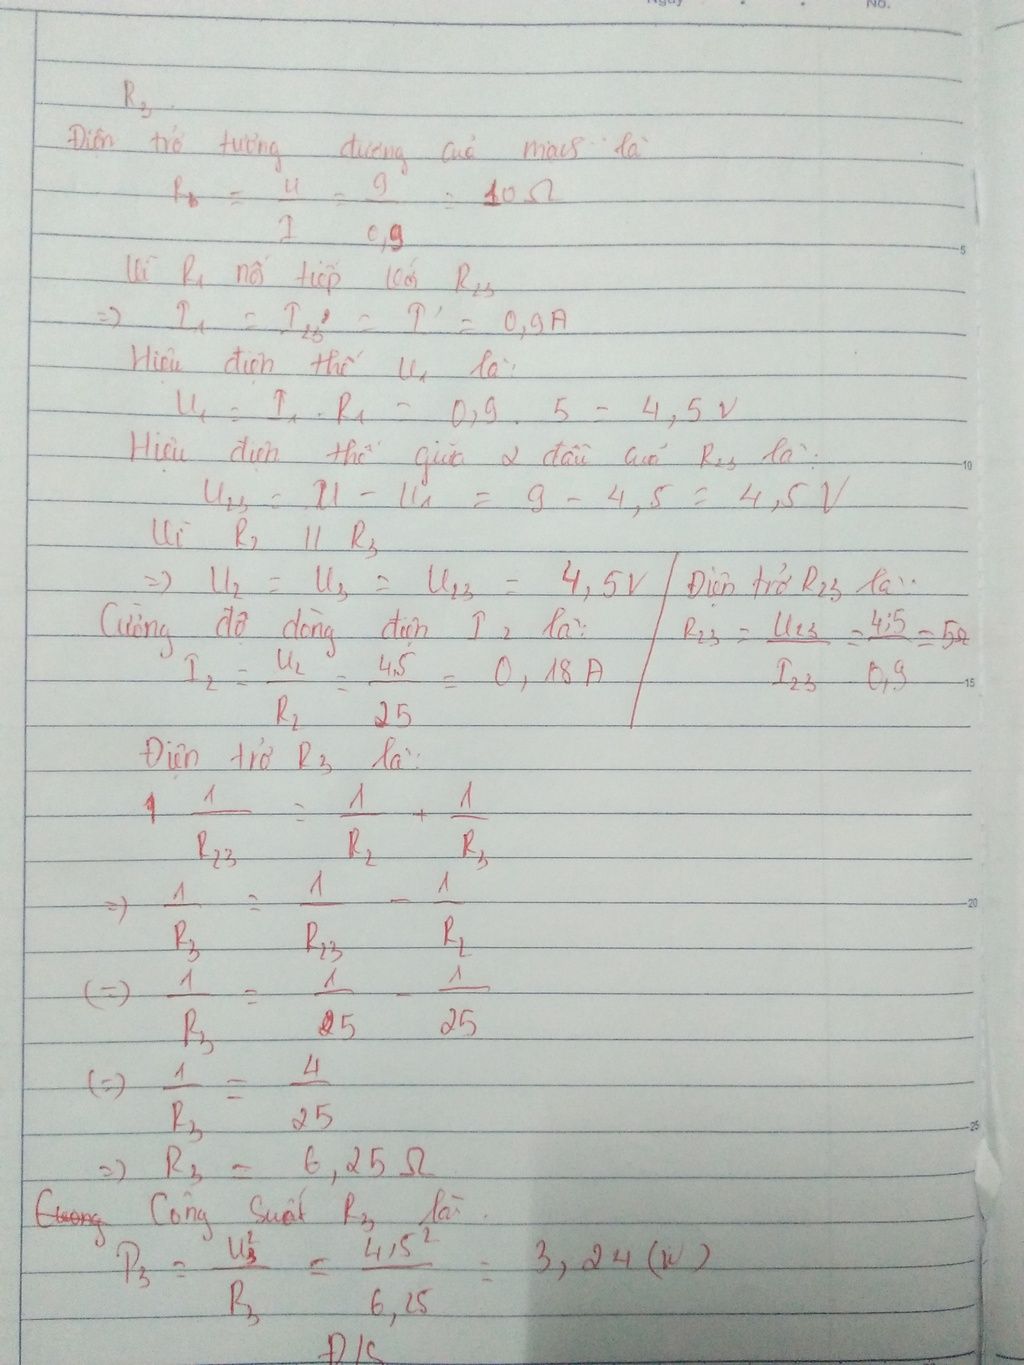 Ngày No.
R3.
Điện trở tương đương của mạch là
Rb = U/I = 9/0,9 = 10Ω
Vì R1 nối tiếp với R23
=> I1 = I23 = I' = 0,9A
Hiệu điện thế U1 là:
U1 = I1 . R1 = 0,9 . 5 = 4,5V
Hiệu điện thế giữa 2 đầu của R23 là:
U23 = U - U1 = 9 - 4,5 = 4,5V
Vì R2 // R3
=> U2 = U3 = U23 = 4,5V
Cường độ dòng điện I2 là:
I2 = U2/R2 = 4,5/25 = 0,18A
Điện trở R23 là:
R23 = U23/I23 = 4,5/0,9 = 5Ω
Điện trở R3 là:
1 1/R23 = 1/R2 + 1/R3
=> 1/R3 = 1/R23 - 1/R2
(=) 1/R3 = 1/25 - 1/25
(=) 1/R3 = 4/25
=> R3 = 6,25Ω
Công suất R3 là:
P3 = U3²/R3 = 4,5²/6,25 = 3,24(W)
Đ/S
5
10
15
20
25